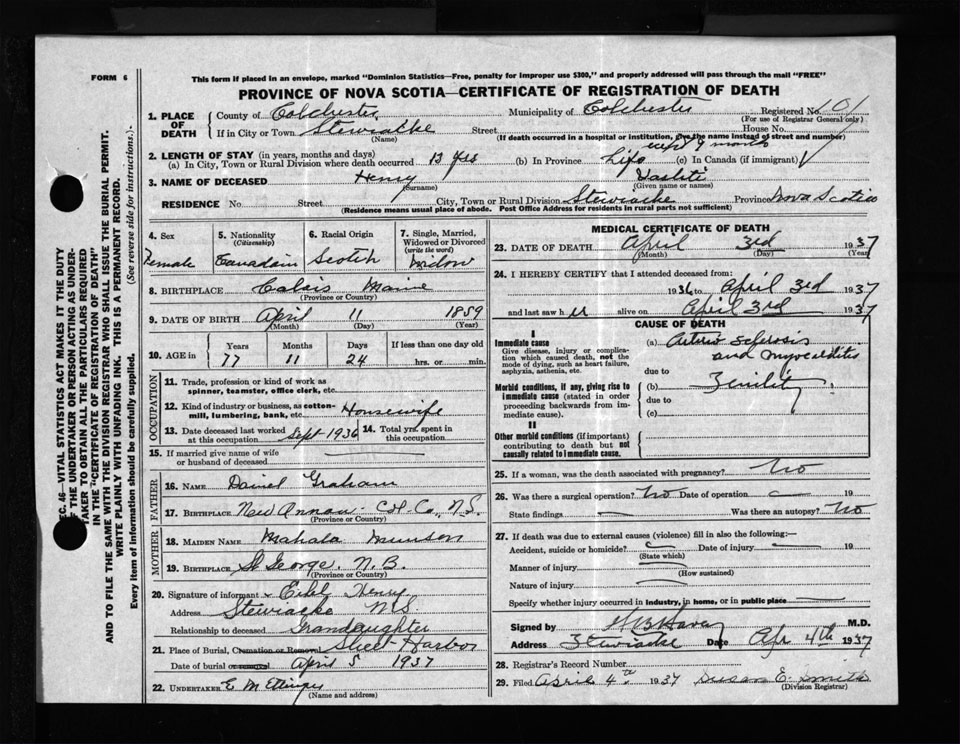 FORM 6
This form if placed in an envelope, marked "Dominion Statistics—Free, penalty for improper use $300," and properly addressed will pass through the mail "FREE"
PROVINCE OF NOVA SCOTIA—CERTIFICATE OF REGISTRATION OF DEATH
1. PLACE OF DEATH
County of Colchester Municipality of Colchester Registered No. 101
(For use of Registrar General only)
If in City or Town Stewiacke Street House No.
(Name) (If death occurred in a hospital or institution, give the name instead of street and number)
2. LENGTH OF STAY (in years, months and days) except 9 months
(a) In City, Town or Rural Division where death occurred 13 yrs (b) In Province Life (c) In Canada (if immigrant)
3. NAME OF DECEASED Henry Vashti
(Surname) (Given name or names)
RESIDENCE No. Street City, Town or Rural Division Stewiacke Province Nova Scotia
(Residence means usual place of abode. Post Office Address for residents in rural parts not sufficient)
4. Sex Female
5. Nationality (Citizenship) Canadain
6. Racial Origin Scotch
7. Single, Married, Widowed or Divorced (write the word) widow
8. BIRTHPLACE Calais Maine
(Province or Country)
9. DATE OF BIRTH April 11 1859
(Month) (Day) (Year)
10. AGE in Years Months Days If less than one day old
77 11 24 hrs. or min.
OCCUPATION
11. Trade, profession or kind of work as spinner, teamster, office clerk, etc.
12. Kind of industry or business, as cotton-mill, lumbering, bank, etc. Housewife
13. Date deceased last worked at this occupation Sept 1936 14. Total yrs. spent in this occupation
15. If married give name of wife or husband of deceased
FATHER
16. NAME Daniel Graham
17. BIRTHPLACE New Annan Col. Co., N.S.
(Province or Country)
MOTHER
18. MAIDEN NAME Mahala Munson
19. BIRTHPLACE St George. N.B.
(Province or Country)
20. Signature of informant Henry
Address Stewiacke N.S.
Relationship to deceased Grandaughter
21. Place of Burial, Cremation or Removal Sheet Harbor
Date of burial or removal April 5 1937
22. UNDERTAKER E M Ettinger
(Name and address)
MEDICAL CERTIFICATE OF DEATH
23. DATE OF DEATH April 3rd 1937
(Month) (Day) (Year)
24. I HEREBY CERTIFY that I attended deceased from:
1936 to April 3rd 1937
and last saw her alive on April 3rd 1937
CAUSE OF DEATH
I
Immediate cause
Give disease, injury or complication which caused death, not the mode of dying, such as heart failure, asphyxia, asthenia, etc.
(a) Arterio Sclerosis
and myocarditis
due to
Morbid conditions, if any, giving rise to immediate cause (stated in order proceeding backwards from immediate cause).
(b) Senility
due to
(c)
II
Other morbid conditions (if important) contributing to death but not causally related to immediate cause.
25. If a woman, was the death associated with pregnancy? No
26. Was there a surgical operation? No Date of operation 19
State findings Was there an autopsy? No
27. If death was due to external causes (violence) fill in also the following:—
Accident, suicide or homicide? Date of injury 19
(State which)
Manner of injury
(How sustained)
Nature of injury
Specify whether injury occurred in industry, in home, or in public place
Signed by M.D.
Address Stewiacke Date Apr 4th 1937
28. Registrar's Record Number
29. Filed April 4th 1937 Susan E. Smith
(Division Registrar)
SEC. 46—VITAL STATISTICS ACT MAKES IT THE DUTY
OF THE UNDERTAKER OR PERSON ACTING AS UNDER-
TAKER TO OBTAIN ALL THE PARTICULARS REQUIRED
IN THE "CERTIFICATE OF REGISTRATION OF DEATH"
AND TO FILE THE SAME WITH THE DIVISION REGISTRAR WHO SHALL ISSUE THE BURIAL PERMIT.
WRITE PLAINLY WITH UNFADING INK. THIS IS A PERMANENT RECORD.
Every item of information should be carefully supplied. (See reverse side for instructions.)